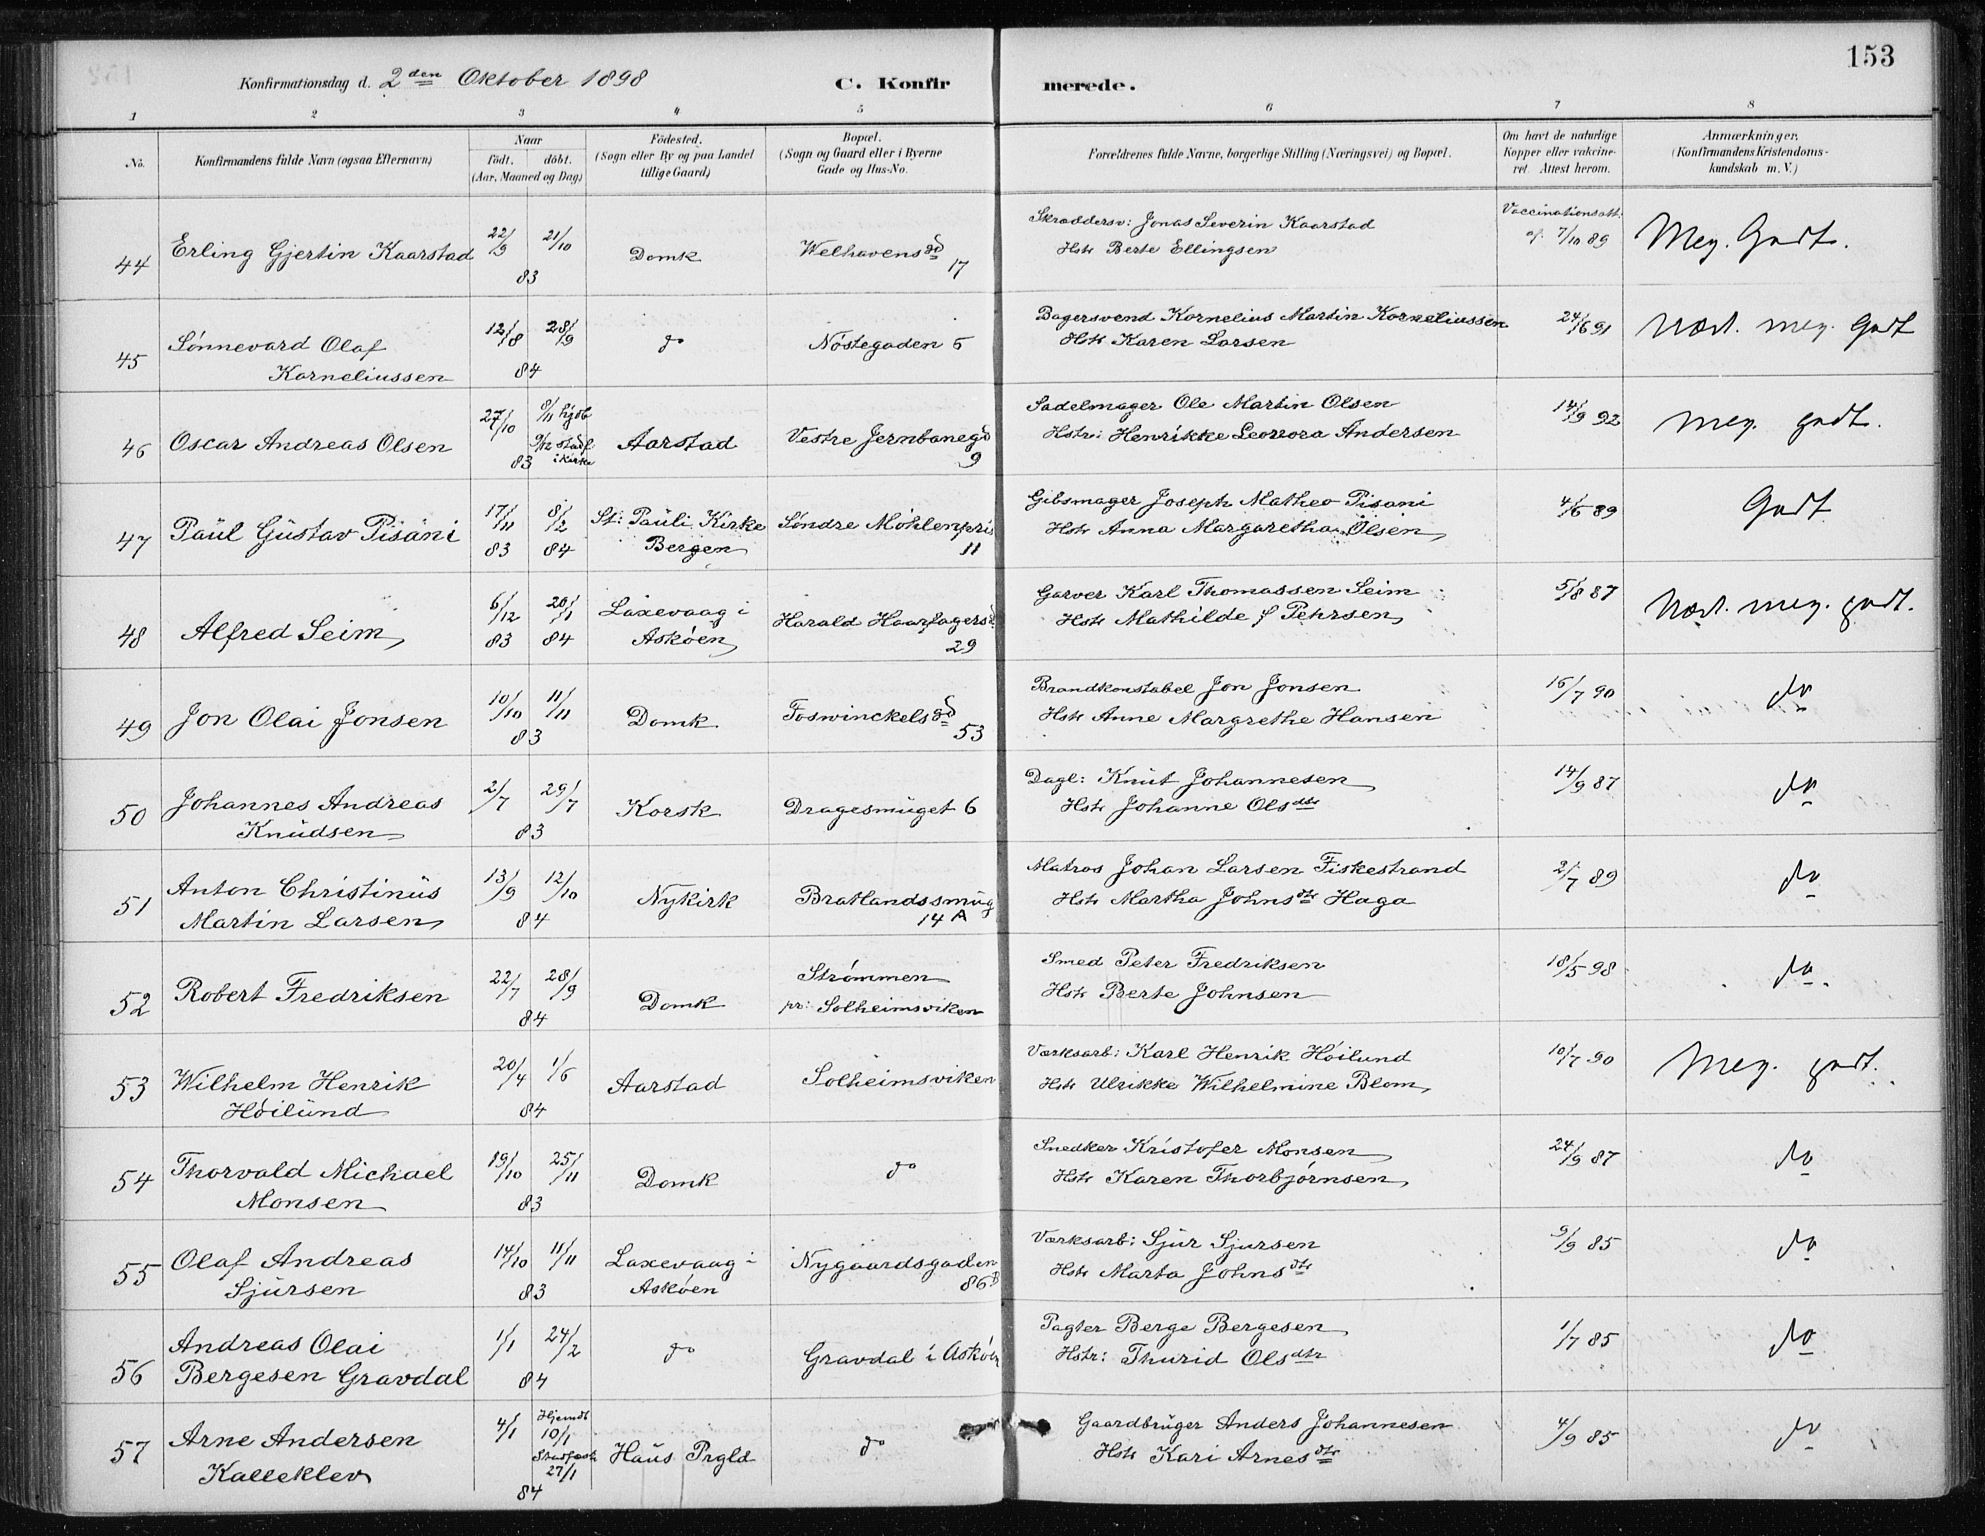 153
Konfirmationsdag d. 2den Oktober 1898
C. Konfirmerede.
1 2 3 4 5 6 7 8
No. Konfirmandens fulde Navn (ogsaa Efternavn) Naar født. døbt. (Aar, Maaned og Dag) Födested. (Sogn eller By og paa Landet tillige Gaard) Bopæl. (Sogn og Gaard eller i Byerne Gade og Hus-No. Forældrenes fulde Navne, borgerlige Stilling (Næringsvei) og Bopæl. Om havt de naturlige Kopper eller vakcineret. Attest herom. Anmærkninger, (Konfirmandens Kristendomskundskab m. V.)
44 Erling Gjertin Kaarstad 22/9 21/10 83 Domk Welhavensgd 17 Skræddersv: Jonas Severin Kaarstad
Hstr Berte Ellingsen Vaccinationsatt. af 7/10 89 Meg. Godt.
45 Sönnevard Olaf
Korneliussen 12/8 28/9 84 do Nöstegaden 5 Bagersvend Kornelius Martin Korneliussen
Hstr Karen Larsen 24/6 91 Næst. meg. Godt
46 Oscar Andreas Olsen 27/10 8/11 hjdb 9/12 stadf. i kirke 83 Aarstad Vestre Jernbanegd 9 Sadelmager Ole Martin Olsen
Hstr: Henrikke Leonora Andersen 14/9 92 Meg. godt.
47 Paul Gustav Pisani 17/11 8/2 83 84 St: Pauli Kirke
Bergen Söndre Möhlenpris 11 Gibsmager Joseph Matheo Pisani
Hstr Anna Margaretha Olsen 4/6 89 Godt
48 Alfred Seim 6/12 20/1 83 84 Laxevaag i
Asköen Harald Haarfagersgd 29 Garver Karl Thomassen Seim
Hstr Mathilde f Pehrsen 5/8 87 Næst. meg. godt.
49 Jon Olai Jonsen 10/10 11/11 83 Domk Foswinckelsgd 53 Brandkonstabel Jon Jonsen
Hstr Anne Margrethe Hansen 16/7 90 do
50 Johannes Andreas
Knudsen 2/7 29/7 83 Korsk Dragesmuget 6 Dagl: Knut Johannesen
Hstr Johanne Olsdtr 14/9 87 do
51 Anton Christinus
Martin Larsen 13/9 12/10 84 Nykirk Bratlandssmug 14 A Matros Johan Larsen Fiskestrand
Hstr Martha Johnsdtr Haga 2/7 89 do
52 Robert Fredriksen 22/7 28/9 84 Domk Strömmen
pr: Solheimsviken Smed Peter Fredriksen
Hstr Berte Johnsen 18/5 98 do.
53 Wilhelm Henrik
Höilund 20/4 1/6 84 Aarstad Solheimsviken Værksarb: Karl Henrik Höilund
Hstr Ulrikke Wilhelmine Blom 10/7 90 Meg. godt.
54 Thorvald Michael
Monsen 19/10 25/11 83 Domk do Snedker Kristofer Monsen
Hstr Karen Thorbjörnsen 24/9 87 do
55 Olaf Andreas
Sjursen 14/10 11/11 83 Laxevaag i
Asköen Nygaardsgaden 86B Værksarb: Sjur Sjursen
Hstr Marta Johnsdtr 9/9 85 do
56 Andreas Olai
Bergesen Gravdal 1/1 24/2 84 do Gravdal i Asköen Pagter Berge Bergesen
Hstr: Thurid Olsdtr 1/7 85 do
57 Arne Andersen
Kalleklev 4/1 Hjemdb 10/1 Stadfæst. 27/1 84 Haus Prgld do Gaardbruger Anders Johannesen
Hstr Kari Arnesdtr 4/9 85 do